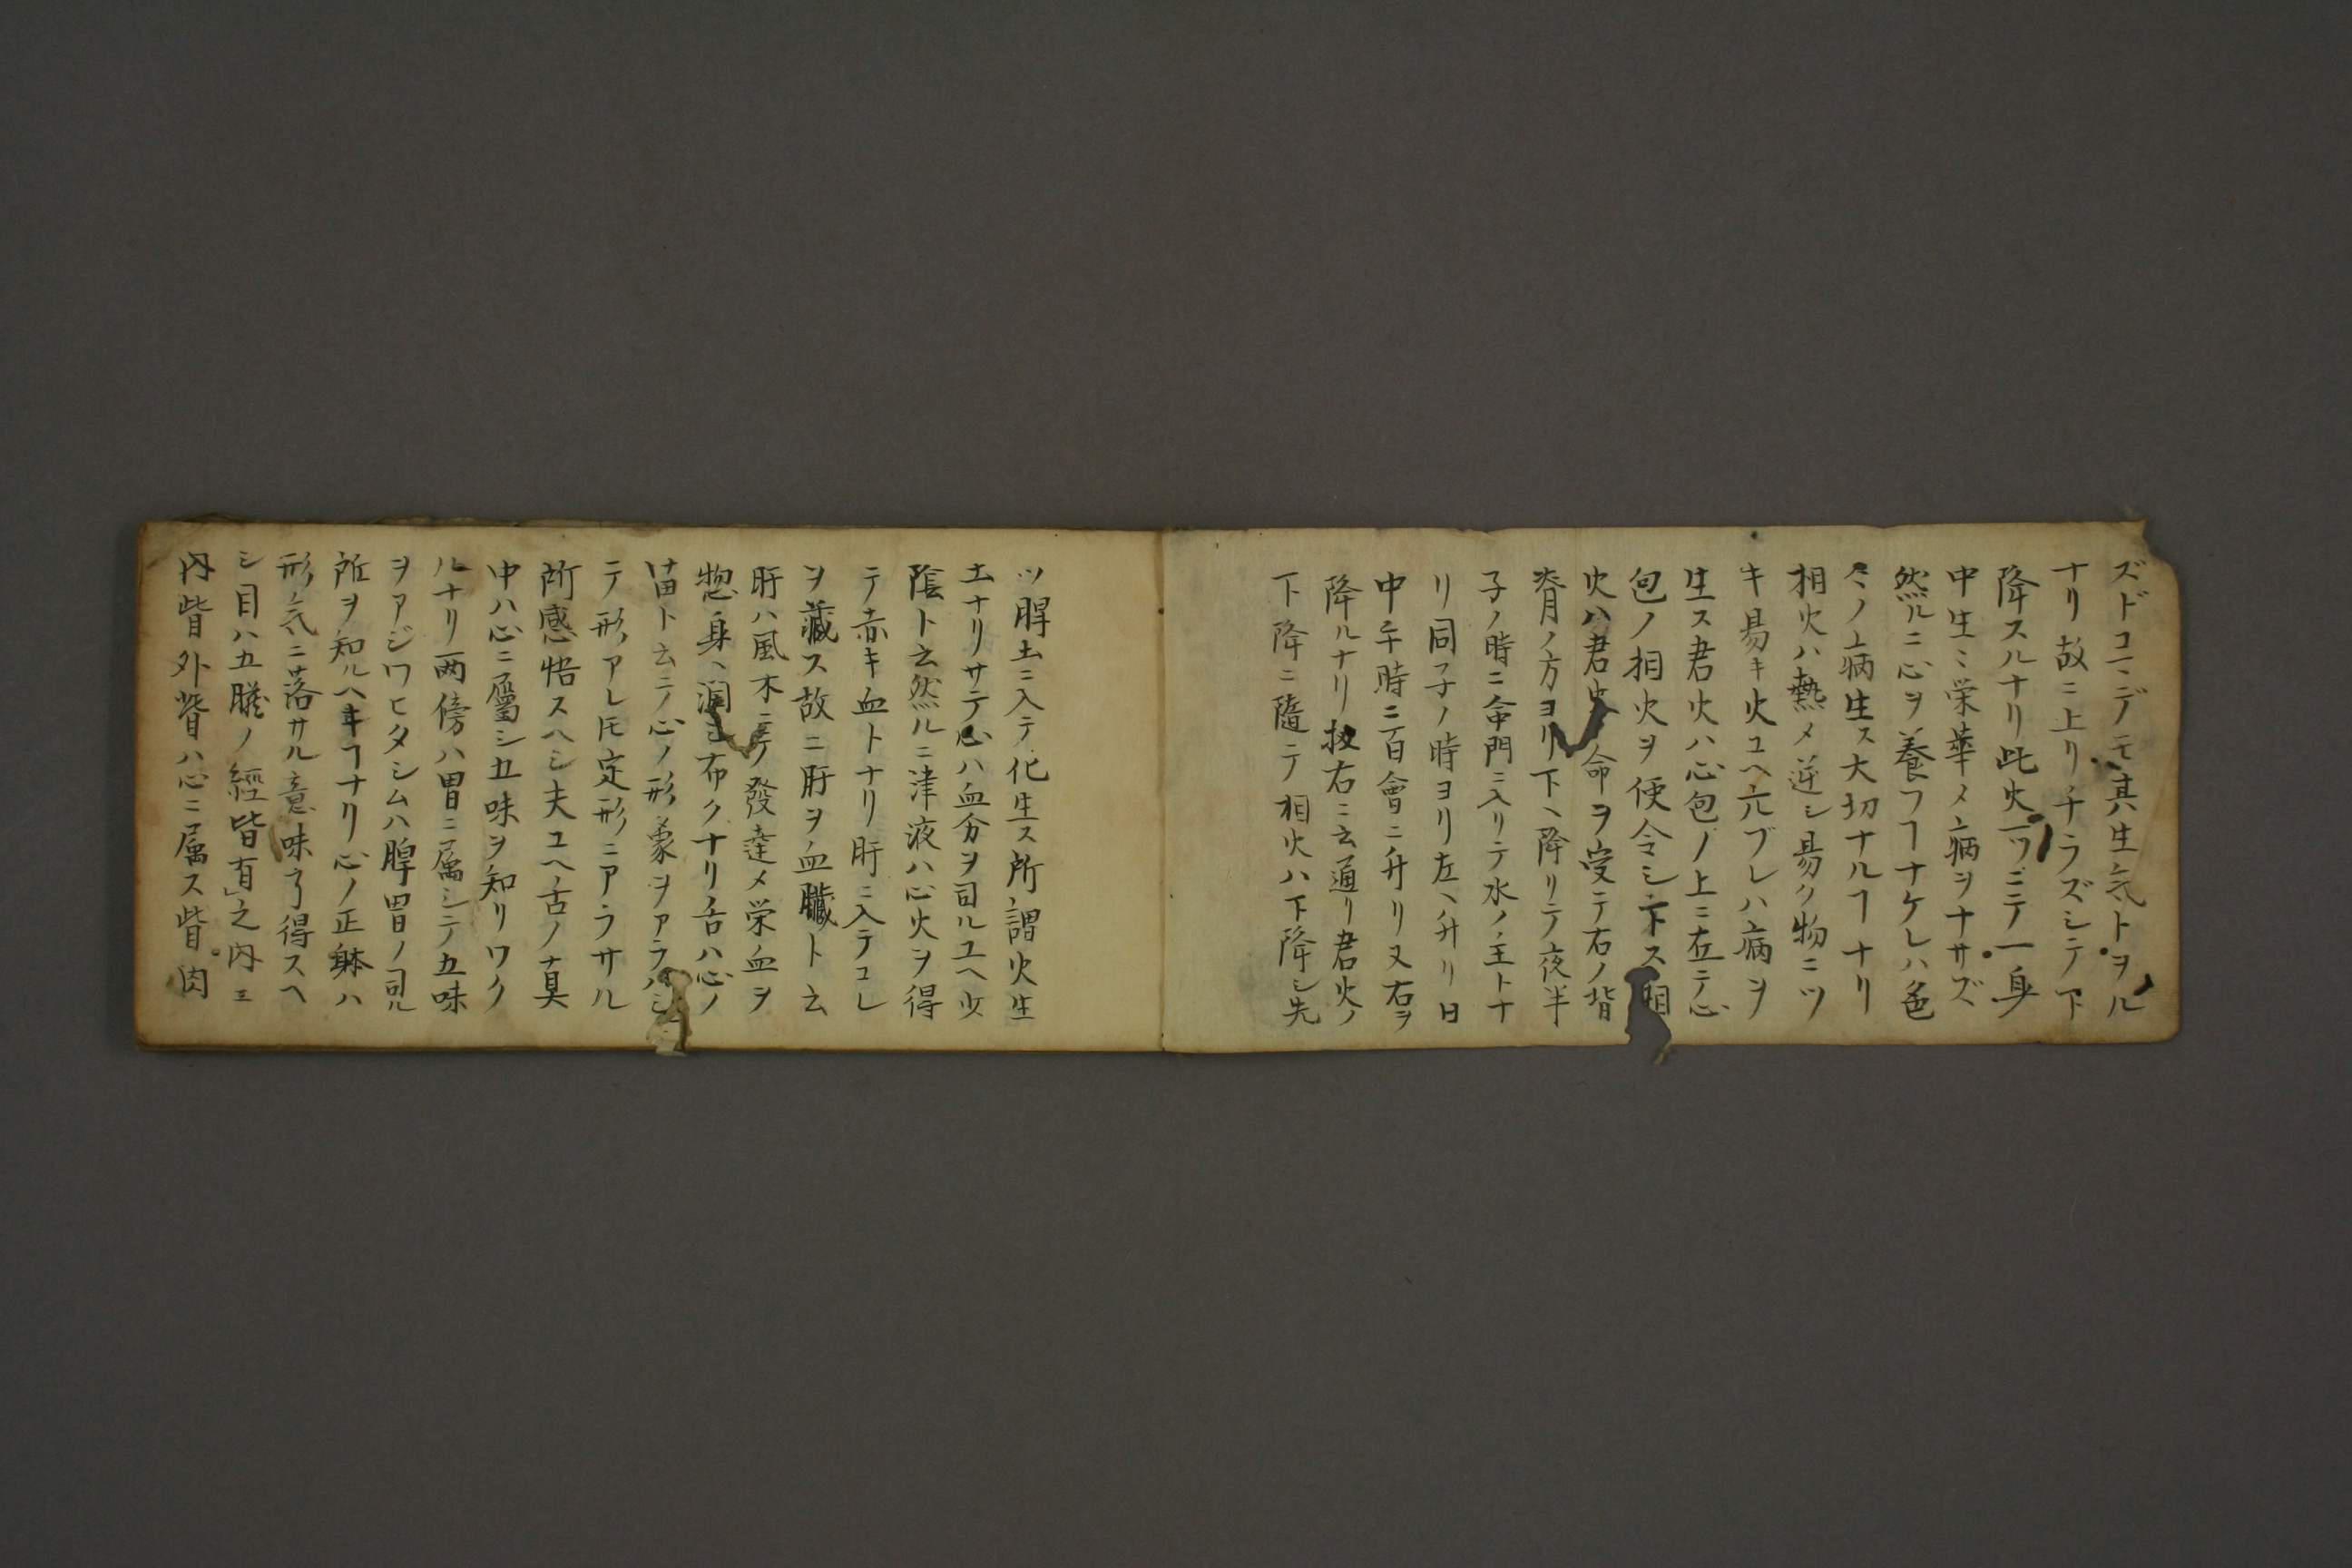 ズドコニデモ其生気トヲル
ナリ故ニ上リチラズシテ下
降スルナリ此火一ツニテ一身
中生ミ栄華メ病ヲナサズ
然ルニ心ヲ養フヿナケレハ色
々ノ病生ス大切ナルヿナリ
相火ハ熱メ逆シ易ク物ニツ
キ易キ火ユヘ亢ブレハ病ヲ
生ス君火ハ心包ノ上ニ在テ心
包ノ相火ヲ使令シ下ス相
火ハ君火命ヲ受テ右ノ背
脊ノ方ヨリ下ヘ降リテ夜半
子ノ時ニ命門ニ入リテ水ノ主トナ
リ同子ノ時ヨリ左ヘ升リ日
中午時ニ百會ニ升リ又右ヲ
降ルナリ扨右ニ云通リ君火ノ
下降ニ隨テ相火ハ下降シ先
ツ脾土ニ入テ化生ス所謂火生
土ナリサテ心ハ血分ヲ司ルユヘ少
陰ト云然ルニ津液ハ心火ヲ得
テ赤キ血トナリ肝ニ入テコレ
ヲ藏ス故ニ肝ヲ血臟ト云
肝ハ風木ニテ發達メ栄血ヲ
惣身ヘ潤シ布クナリ舌ハ心ノ
苗ト云ニノ心ノ形象ヲアラハシ
テ形アレ𪜈定形ニアラサル
所感悟スヘシ夫ユヘ舌ノ真
中ハ心ニ屬シ五味ヲ知リワク
ルナリ両傍ハ胃ニ属シテ五味
ヲアジワヒタシムハ脾胃ノ司ル
所ヲ知ルヘキヿナリ心ノ正躰ハ
形気ニ落サル意味了得スヘ
シ目ハ五臓ノ經皆有之内ヱ
内眥外眥ハ心ニ属ス眥肉